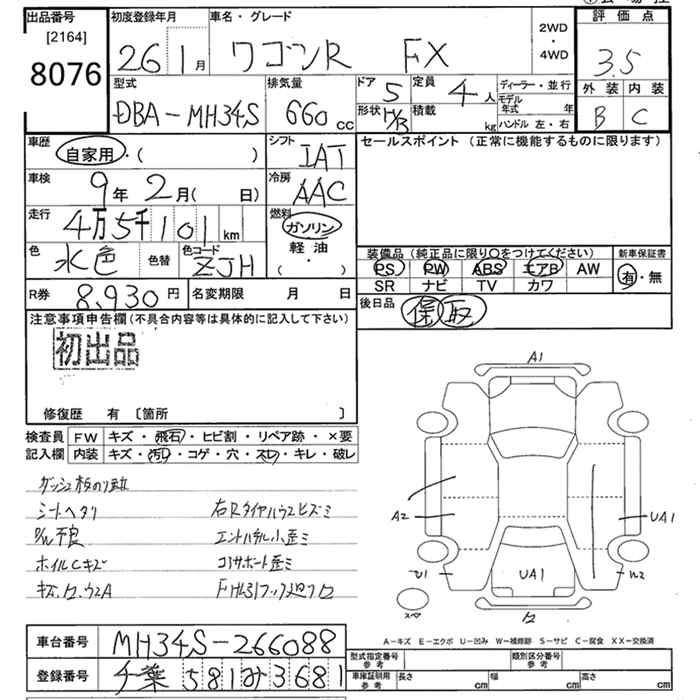 出品番号 初度登録年月 車名・グレード 評価点
[2164] 2WD
8076 26 1月 ワゴンR FX 4WD 3.5
型式 排気量 ドア 5 定員 4人 ディーラー・並行 外装 内装
DBA-MH34S 660cc 形状 H/B 積載 kg モデル年式 年 B C
ハンドル 左・右
車歴 自家用・( ) シフト IAT セールスポイント (正常に機能するものに限ります)
車検 9年 2月( 日) 冷房 AAC
走行 4万5千101km 燃料 ガソリン
色 水色 色替 色コード ZJH 軽油 ( ・ )
装備品 (純正品に限り○をつけてください) 新車保証書
PS PW ABS エアB AW 有・無
SR ナビ TV カワ
R券 8,930円 名変期限 月 日 後日品 保 取
注意事項申告欄(不具合内容等は具体的に記入して下さい)
初出品
修復歴 有 〔箇所 〕
検査員 FW キズ・飛石・ヒビ割・リペア跡・×要
記入欄 内装 キズ・汚レ・コゲ・穴・スレ・キレ・破レ
シートヘタリ
ホイルCキズ
A1
A2 UA1
U1 UA1
スペア
A-キズ E-エクボ U-凹み W-補修跡 S-サビ C-腐食 XX-交換済
車台番号 MH34S-266088 型式指定番号 参考 類別区分番号 参考
登録番号 千葉 581 み 3681 車庫証明用 参考 長さ cm 幅 cm 高さ cm